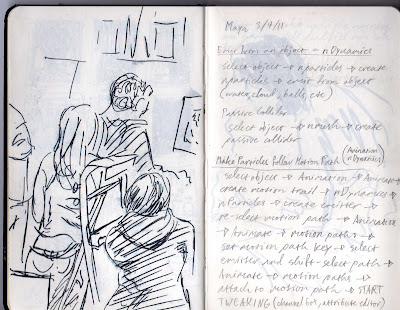 Maya 3/4/11
Emit from an object → nDynamics
select object → nparticles → create
nparticles → emit from object
(water, cloud, balls, etc)
Passive Collider
select object → nmesh → create
passive collider
Make Particles Follow Motion Path (Animation nDynamics)
select object → Animation → Animate →
create motion trail → nDynamics →
nParticles → create emitter →
re-select motion path → Animation
→ Animate → motion paths →
set motion path key → select
emitter and shift-select path →
Animate → motion paths →
attach to motion path → START
TWEAKING (channel box, attribute editor)